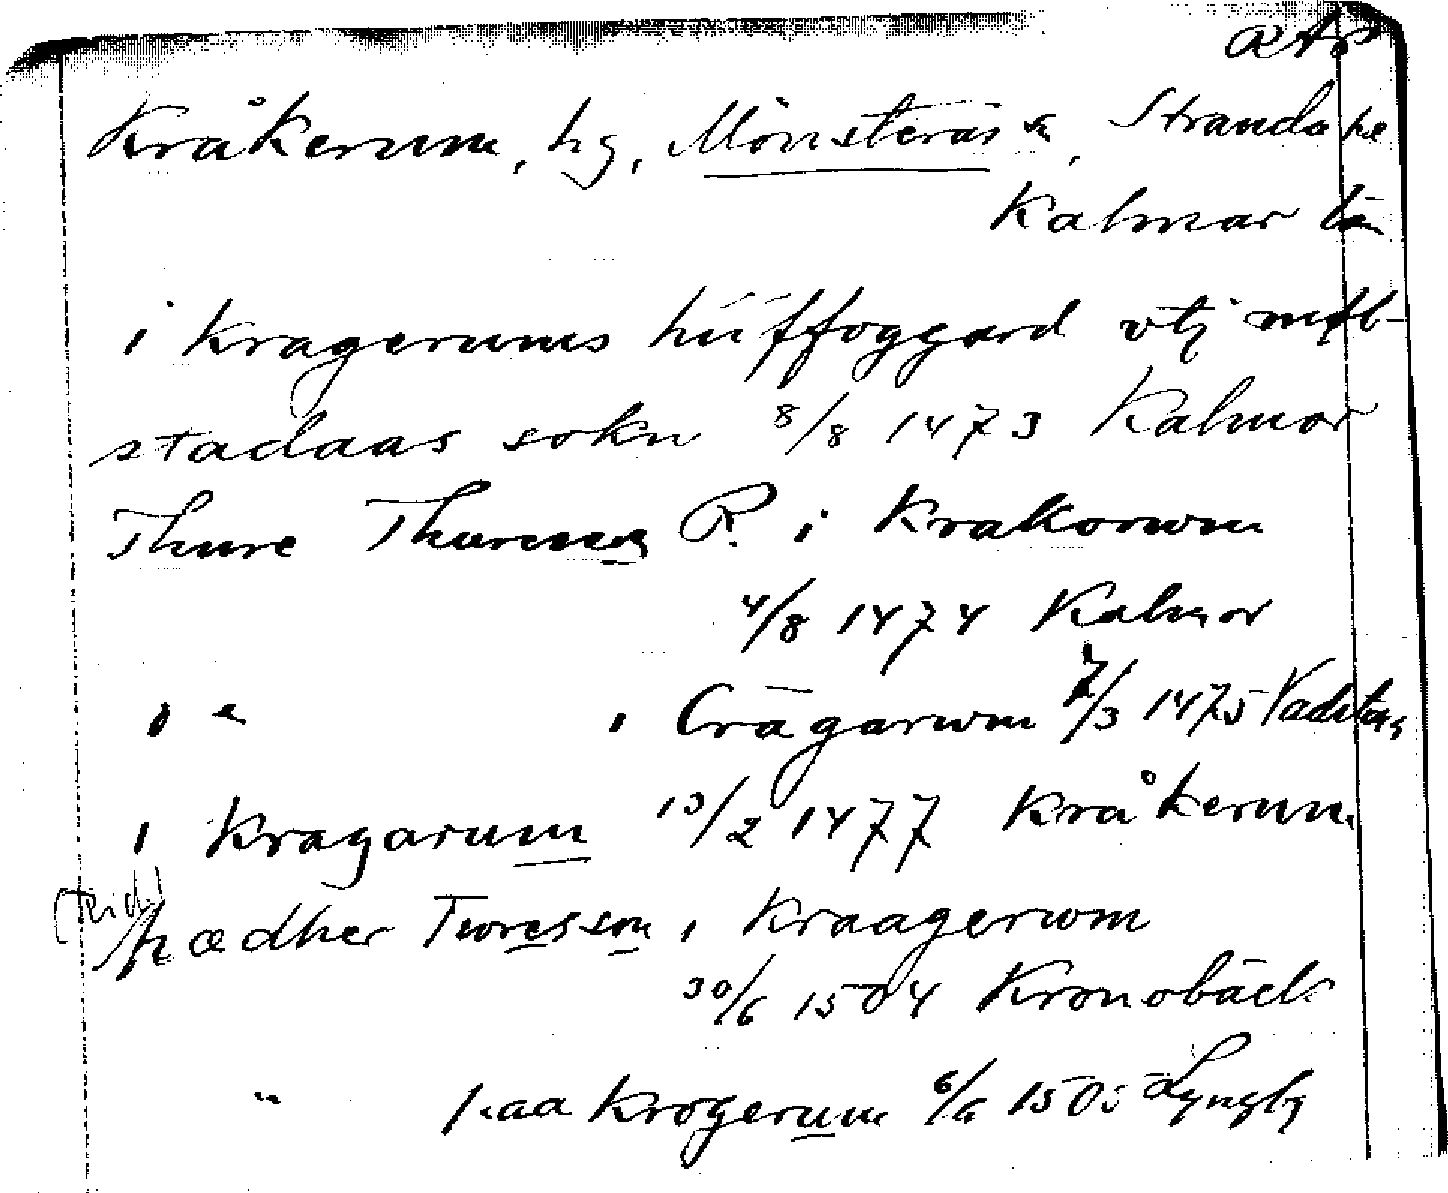 Kråkerum, hg, Mönsterås sn, Stranda hd
Kalmar län
i Kragerums hüffoggard vtj møl-
stadaas sokn 8/8 1473 Kalmar
Thure Thuresson R. i Krakorwm
4/8 1474 Kalmar
i Cragarwm 7/3 1475 Vadstena
i Kragarum 13/2 1477 Kråkerum
pædher Twresson i Kraagerwm
30/6 1504 Kronobäck
" paa Krogerum 6/6 1505 Lyngby